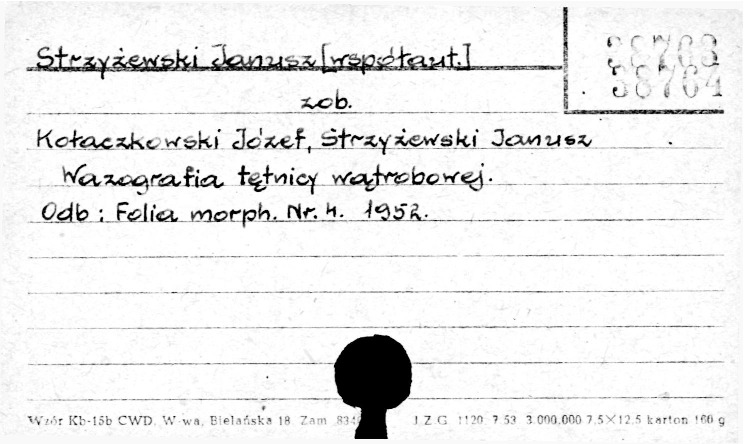 Strzyżewski Janusz [współaut.]
38763
38764
zob.
Kołaczkowski Józef, Strzyżewski Janusz
Wazografia tętnicy wątrobowej.
Odb: Folia morph. Nr. 4. 1952.
Wzór Kb-15b CWD, W-wa, Bielańska 18 Zam 834 J.Z.G. 1120 7.53 3.000.000 7,5×12,5 karton 160 g